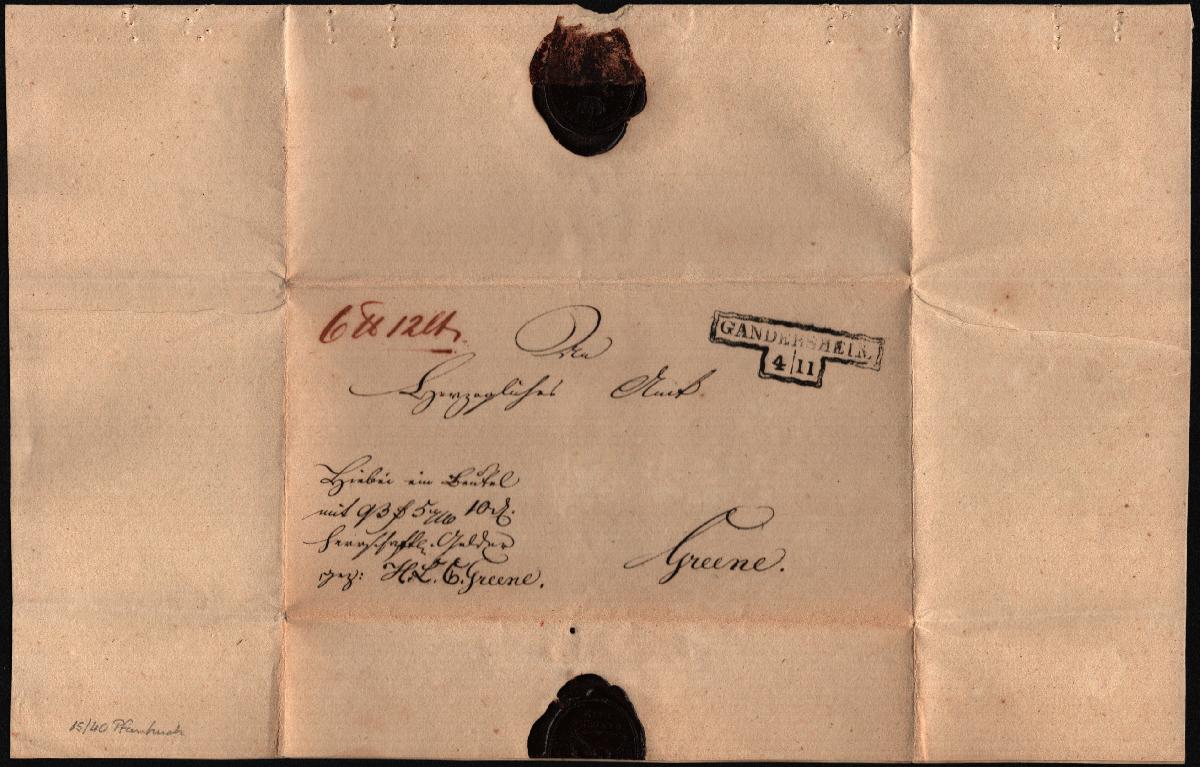 6 ℔ 12 Lt.
An
GANDERSHEIM
4 | 11
Herzogliches Amt
Hiebei ein Beutel
mit 93 ₰ 5 10 ₰.
herrschaftl. Gelder
gez: H. L. C. Greene.
Greene.
15/40